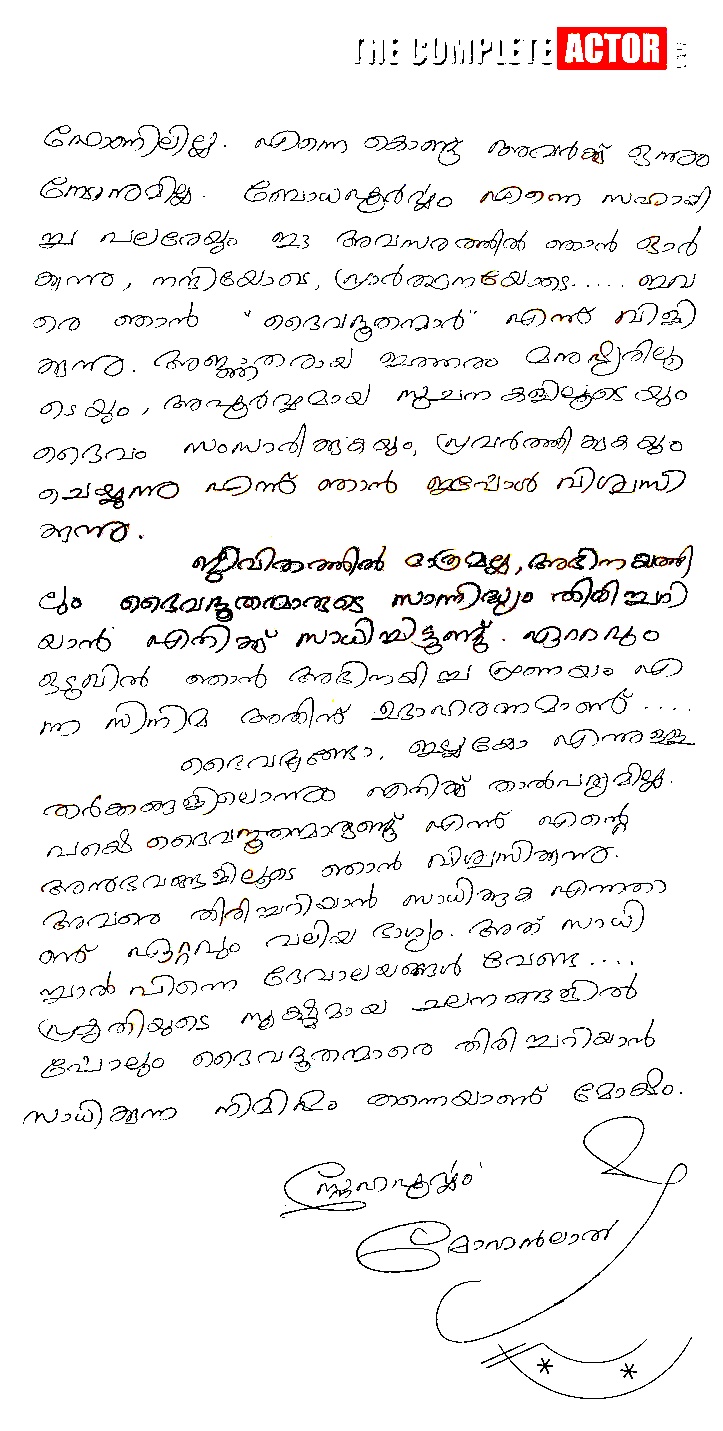 THE COMPLETE ACTOR
ഫോണിലില്ല. എന്നെ കൊണ്ടു അവർക്ക് ഒന്നും
നേടാനുമില്ല. ബോധപൂർവ്വം എന്നെ സഹായി
ച്ച പലരേയും ഈ അവസരത്തിൽ ഞാൻ ഓർ
ക്കുന്നു, നന്ദിയോടെ, പ്രാർത്ഥനയോടെ..... ഇവ
രെ ഞാൻ "ദൈവദൂതന്മാർ" എന്ന് വിളി
ക്കുന്നു. അജ്ഞാതരായ ഇത്തരം മനുഷ്യരിലൂ
ടെയും, അപൂർവ്വമായ സൂചനകളിലൂടെയും
ദൈവം സംസാരിക്കുകയും, പ്രവർത്തിക്കുകയും
ചെയ്യുന്നു എന്ന് ഞാൻ ഇപ്പോൾ വിശ്വസി
ക്കുന്നു.
ജീവിതത്തിൽ മാത്രമല്ല, അഭിനയത്തി
ലും ദൈവദൂതന്മാരുടെ സാന്നിദ്ധ്യം തിരിച്ചറി
യാൻ എനിക്ക് സാധിച്ചിട്ടുണ്ട്. ഏറ്റവും
ഒടുവിൽ ഞാൻ അഭിനയിച്ച പ്രണയം എ
ന്ന സിനിമ അതിന് ഉദാഹരണമാണ്....
ദൈവമുണ്ടോ, ഇല്ലയോ എന്നുള്ള
തർക്കങ്ങളിലൊന്നും എനിക്ക് താൽപര്യമില്ല.
പക്ഷെ ദൈവദൂതന്മാരുണ്ട് എന്ന് എന്റെ
അനുഭവങ്ങളിലൂടെ ഞാൻ വിശ്വസിക്കുന്നു.
അവരെ തിരിച്ചറിയാൻ സാധിക്കുക എന്നതാ
ണ് ഏറ്റവും വലിയ ഭാഗ്യം. അത് സാധി
ച്ചാൽ പിന്നെ ദേവാലയങ്ങൾ വേണ്ട....
പ്രകൃതിയുടെ സൂക്ഷ്മമായ ചലനങ്ങളിൽ
പോലും ദൈവദൂതന്മാരെ തിരിച്ചറിയാൻ
സാധിക്കുന്ന നിമിഷം തന്നെയാണ് മോക്ഷം.
സ്നേഹപൂർവ്വം
മോഹൻലാൽ